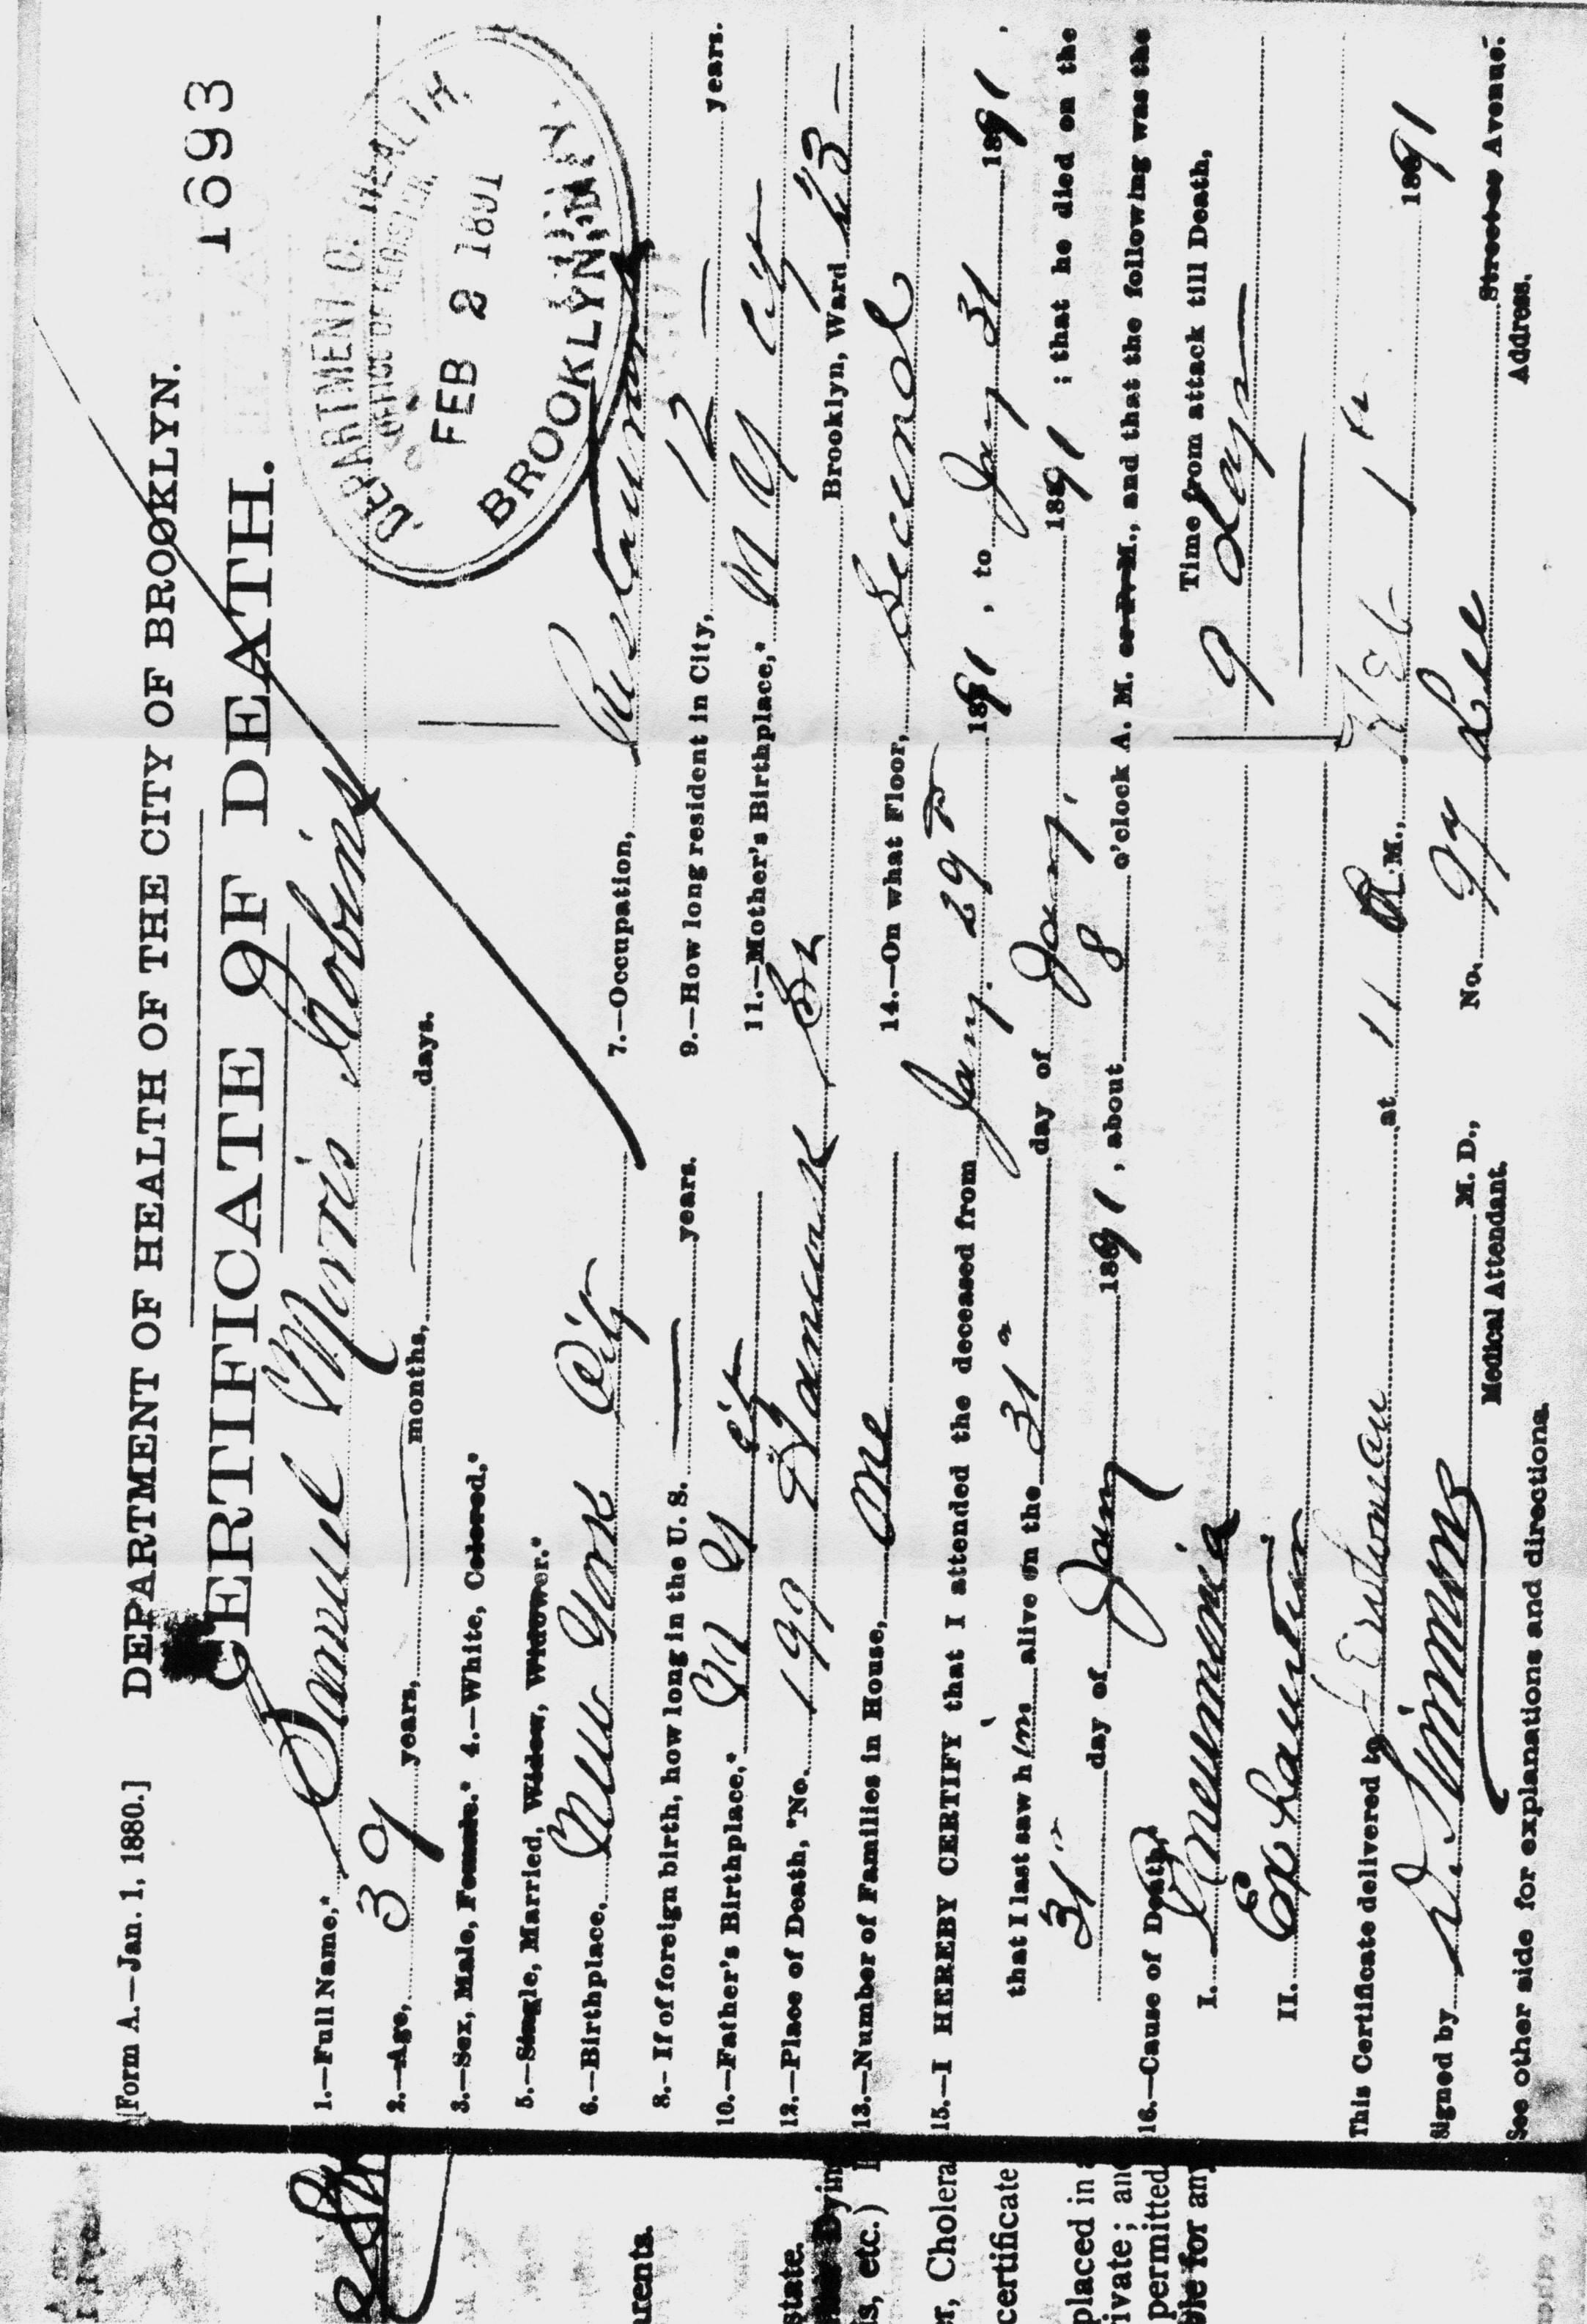 [Form A.—Jan. 1, 1880.] DEPARTMENT OF HEALTH OF THE CITY OF BROOKLYN.
CERTIFICATE OF DEATH. 1693
DEPARTMENT OF HEALTH
OFFICE OF REGISTRAR
FEB 2 1891
BROOKLYN, N.Y.
1.—Full Name,* Samuel Morris Robins
2.—Age, 39 years, — months, — days.
3.—Sex, Male, Female.* 4.—White, Colored.*
5.—Single, Married, Widow, Widower.*
6.—Birthplace, New York City 7.—Occupation,
8.—If of foreign birth, how long in the U. S. — years. 9.—How long resident in City, 12 — years.
10.—Father's Birthplace,* N Y City 11.—Mother's Birthplace,* N Y City
12.—Place of Death, *No. 199 Hancock St Brooklyn, Ward 23 —
13.—Number of Families in House, One 14.—On what Floor, Second
15.—I HEREBY CERTIFY that I attended the deceased from Jany. 29th 1891, to Jany 31 1891,
that I last saw him alive on the 31st day of Jany. 1891; that he died on the
31st day of Jany 1891, about 8 o'clock A. M. or P. M., and that the following was the
16.—Cause of Death, Time from attack till Death,
I. Pneumonia 9 days
II. Exhaustion
This Certificate delivered to at 11 A.M., Feb 1st 1891
Signed by D. Simmons M. D., No. 97 Lee Street or Avenue.
Medical Attendant. Address.
See other side for explanations and directions.
arents.
state.
Dyin
s, etc.)
r, Cholera
certificate
placed in a
ivate; and
permitted
ble for any